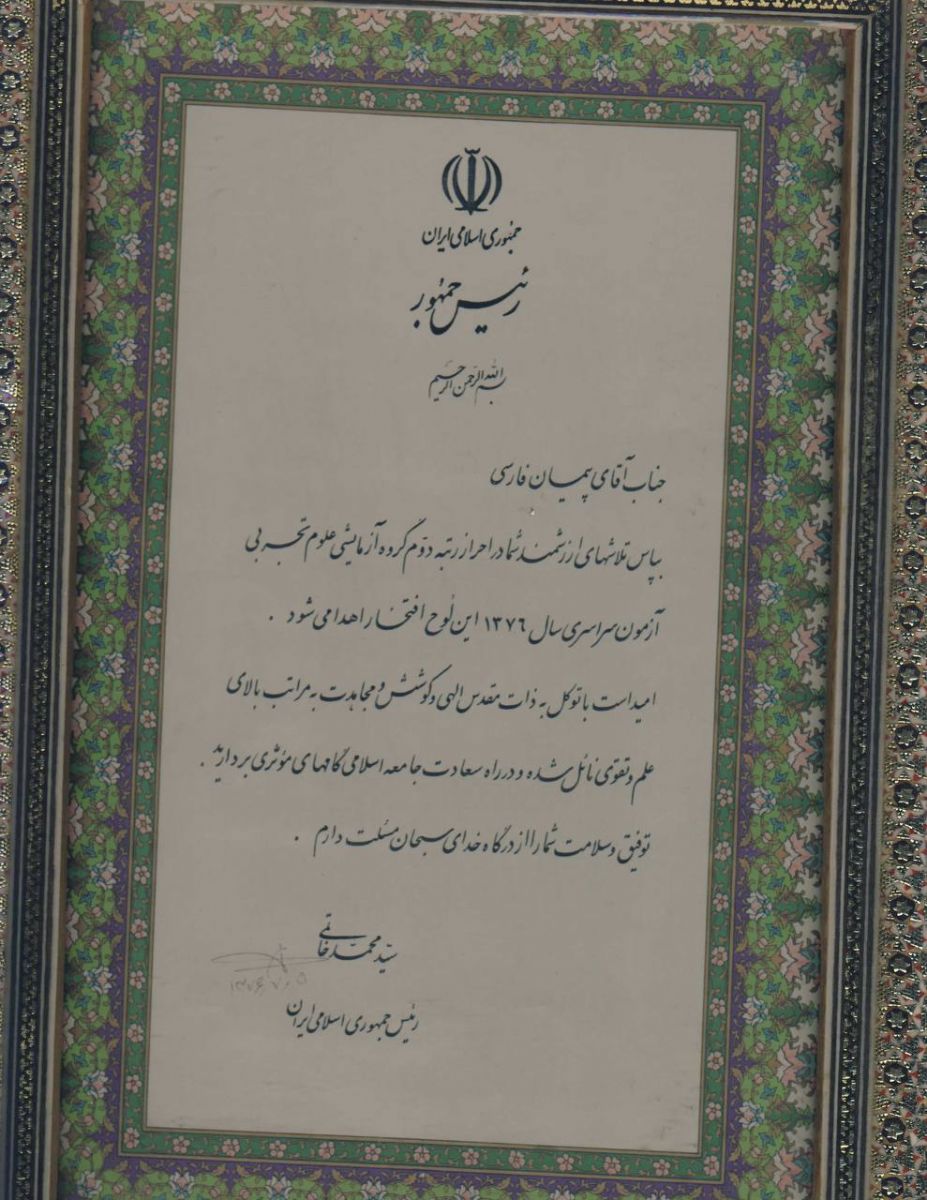 جمهوری اسلامی ایران
رئیس جمهور
بسم الله الرحمن الرحیم
جناب آقای پیمان فارسی
بپاس تلاشهای ارزشمند شما در احراز رتبه دوّم گروه آزمایشی علوم تجربی
آزمون سراسری سال ۱۳۷۶ این لوح افتخار اهدا می شود .
امید است با توکل به ذات مقدس الهی و کوشش و مجاهدت به مراتب بالای
علم و تقوی نائل شده و در راه سعادت جامعه اسلامی گامهای مؤثری بردارید .
توفیق و سلامت شما را از درگاه خدای سبحان مسئلت دارم .
سیّد محمّد خاتمی
رئیس جمهوری اسلامی ایران